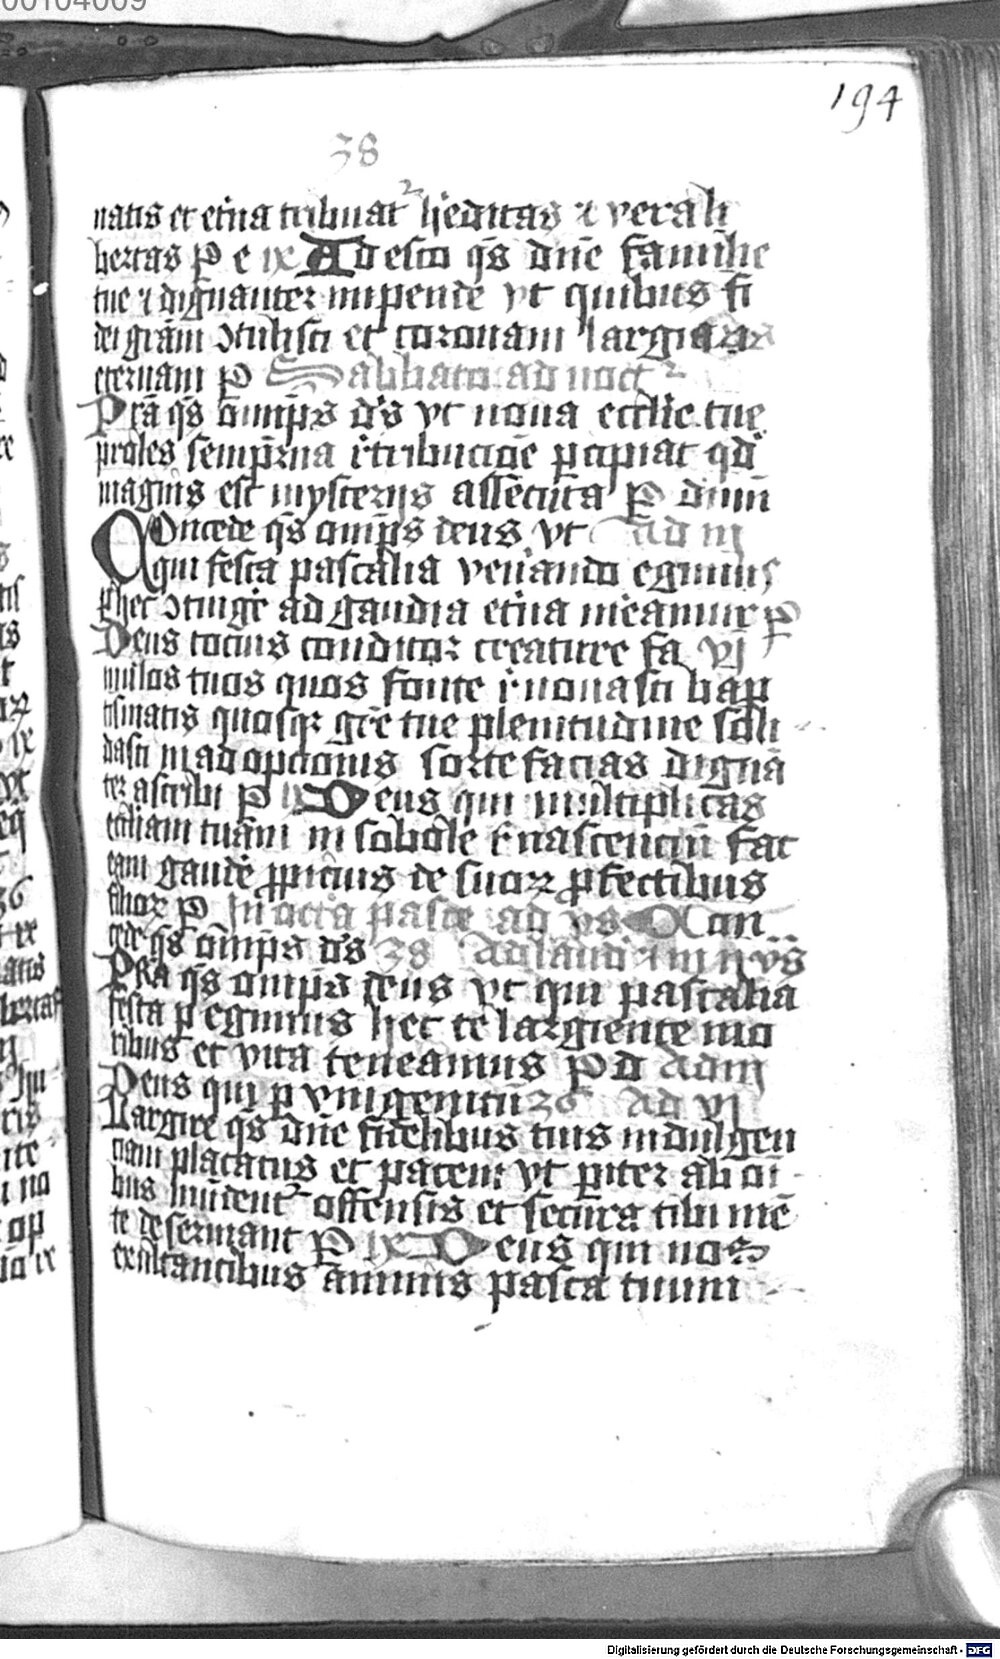 00104009
194
38
natis et et̄na tribuat᷑ h̓editas ⁊ vera li
bertas P e ix Adesto qs̄ dn̄e familie
tue ⁊ dignanter impende vt quibus fi
dei gr̄am ꝯtulisti et coronam largiaris
eternam P Sabbato ad noct᷑
Pr̄a qs̄ om̄ps ds̄ vt noua eccl̄ie tue
proles sempit̓na r̓tribucōe p̱cipiat qd̓
magnis est mysterijs assecuta P dnm̄
Concede qs̄ om̄ps deus vt ad iij
qui festa paschalia ven̓ando egimus
p̱ hec ꝯting̓e ad gaudia et̓na mereamur P
Deus tocius conditor creature fa vj
mulos tuos quos fonte r̓nouasti bap
tismatis quosqꝫ gr̄e tue plenitudine soli
dasti in adopcionis sorte facias dignā
ter ascribi P ix Deus qui multiplicas
eccl̄iam tuam in sobole r̓nascenciū fac
eam gaud̓e ꝓpicius de suoꝝ ꝓfectibus
filioꝝ P In octa pasce ad vs Con
cede qs̄ om̄ps ds̄ 38 Ad laud̓ ⁊ in ij vs̄
Pr̄a qs̄ om̄ps deus vt qui pascalia
festa p̱egimus hec te largiente mo
ribus et vita teneamus P d Ad iij
Deus qui p̱ vnigenitū 36 Ad vj
Largire qs̄ dn̄e fidelibus tuis indulgen
ciam placatus et pacem vt pariter ab oi
bus mūdent᷑ offensis et secura tibi mē
te deseruiant P ix Deus qui nos
exultantibus animis pasca tuum
Digitalisierung gefördert durch die Deutsche Forschungsgemeinschaft - DFG